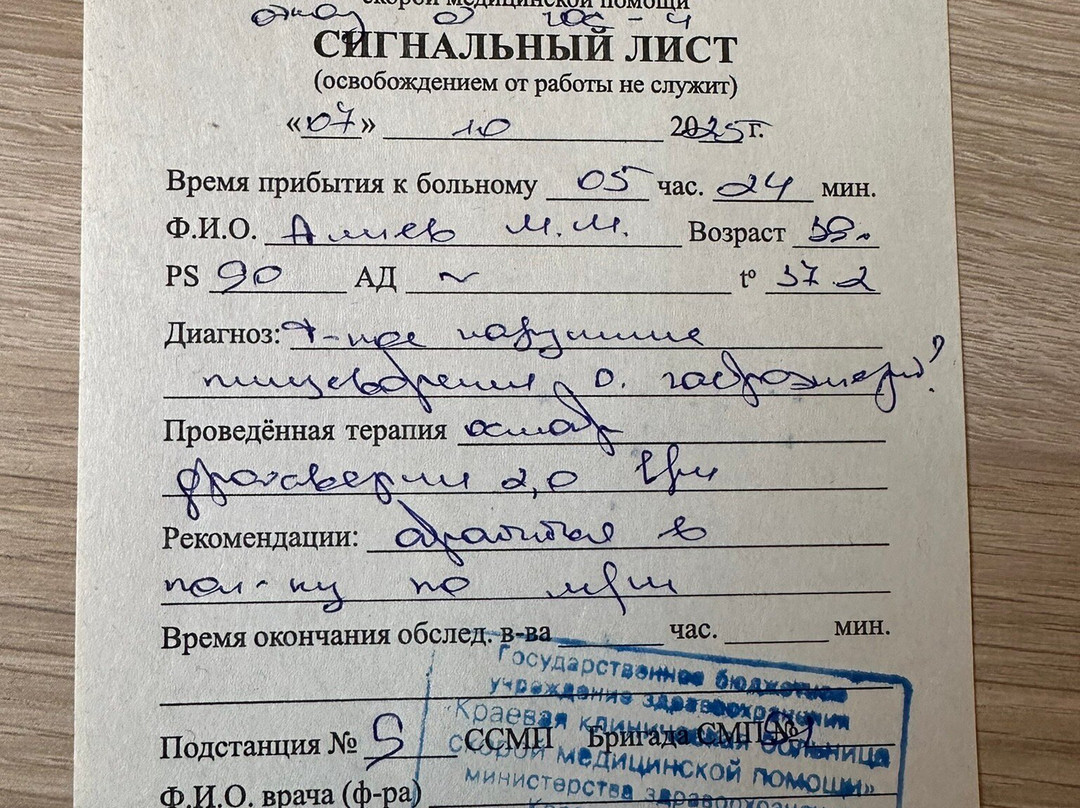 скорой медицинской помощи
отказ от гос-и
СИГНАЛЬНЫЙ ЛИСТ
(освобождением от работы не служит)
«07» 10 2025 г.
Время прибытия к больному 05 час. 24 мин.
Ф.И.О. Алиев М.М. Возраст
PS 90 АД ~ t° 37.2
Диагноз: нарушение
пищеварения о.
Проведённая терапия осмотр
дротаверин 2,0
Рекомендации: обратиться в
пол-ку по м/ж
Время окончания обслед. в-ва час. мин.
Государственное бюджетное
учреждение здравоохранения
"Краевая клиническая больница
скорой медицинской помощи»
министерства здравоохранения
Подстанция № 5 ССМП Бригада СМП №
Ф.И.О. врача (ф-ра)